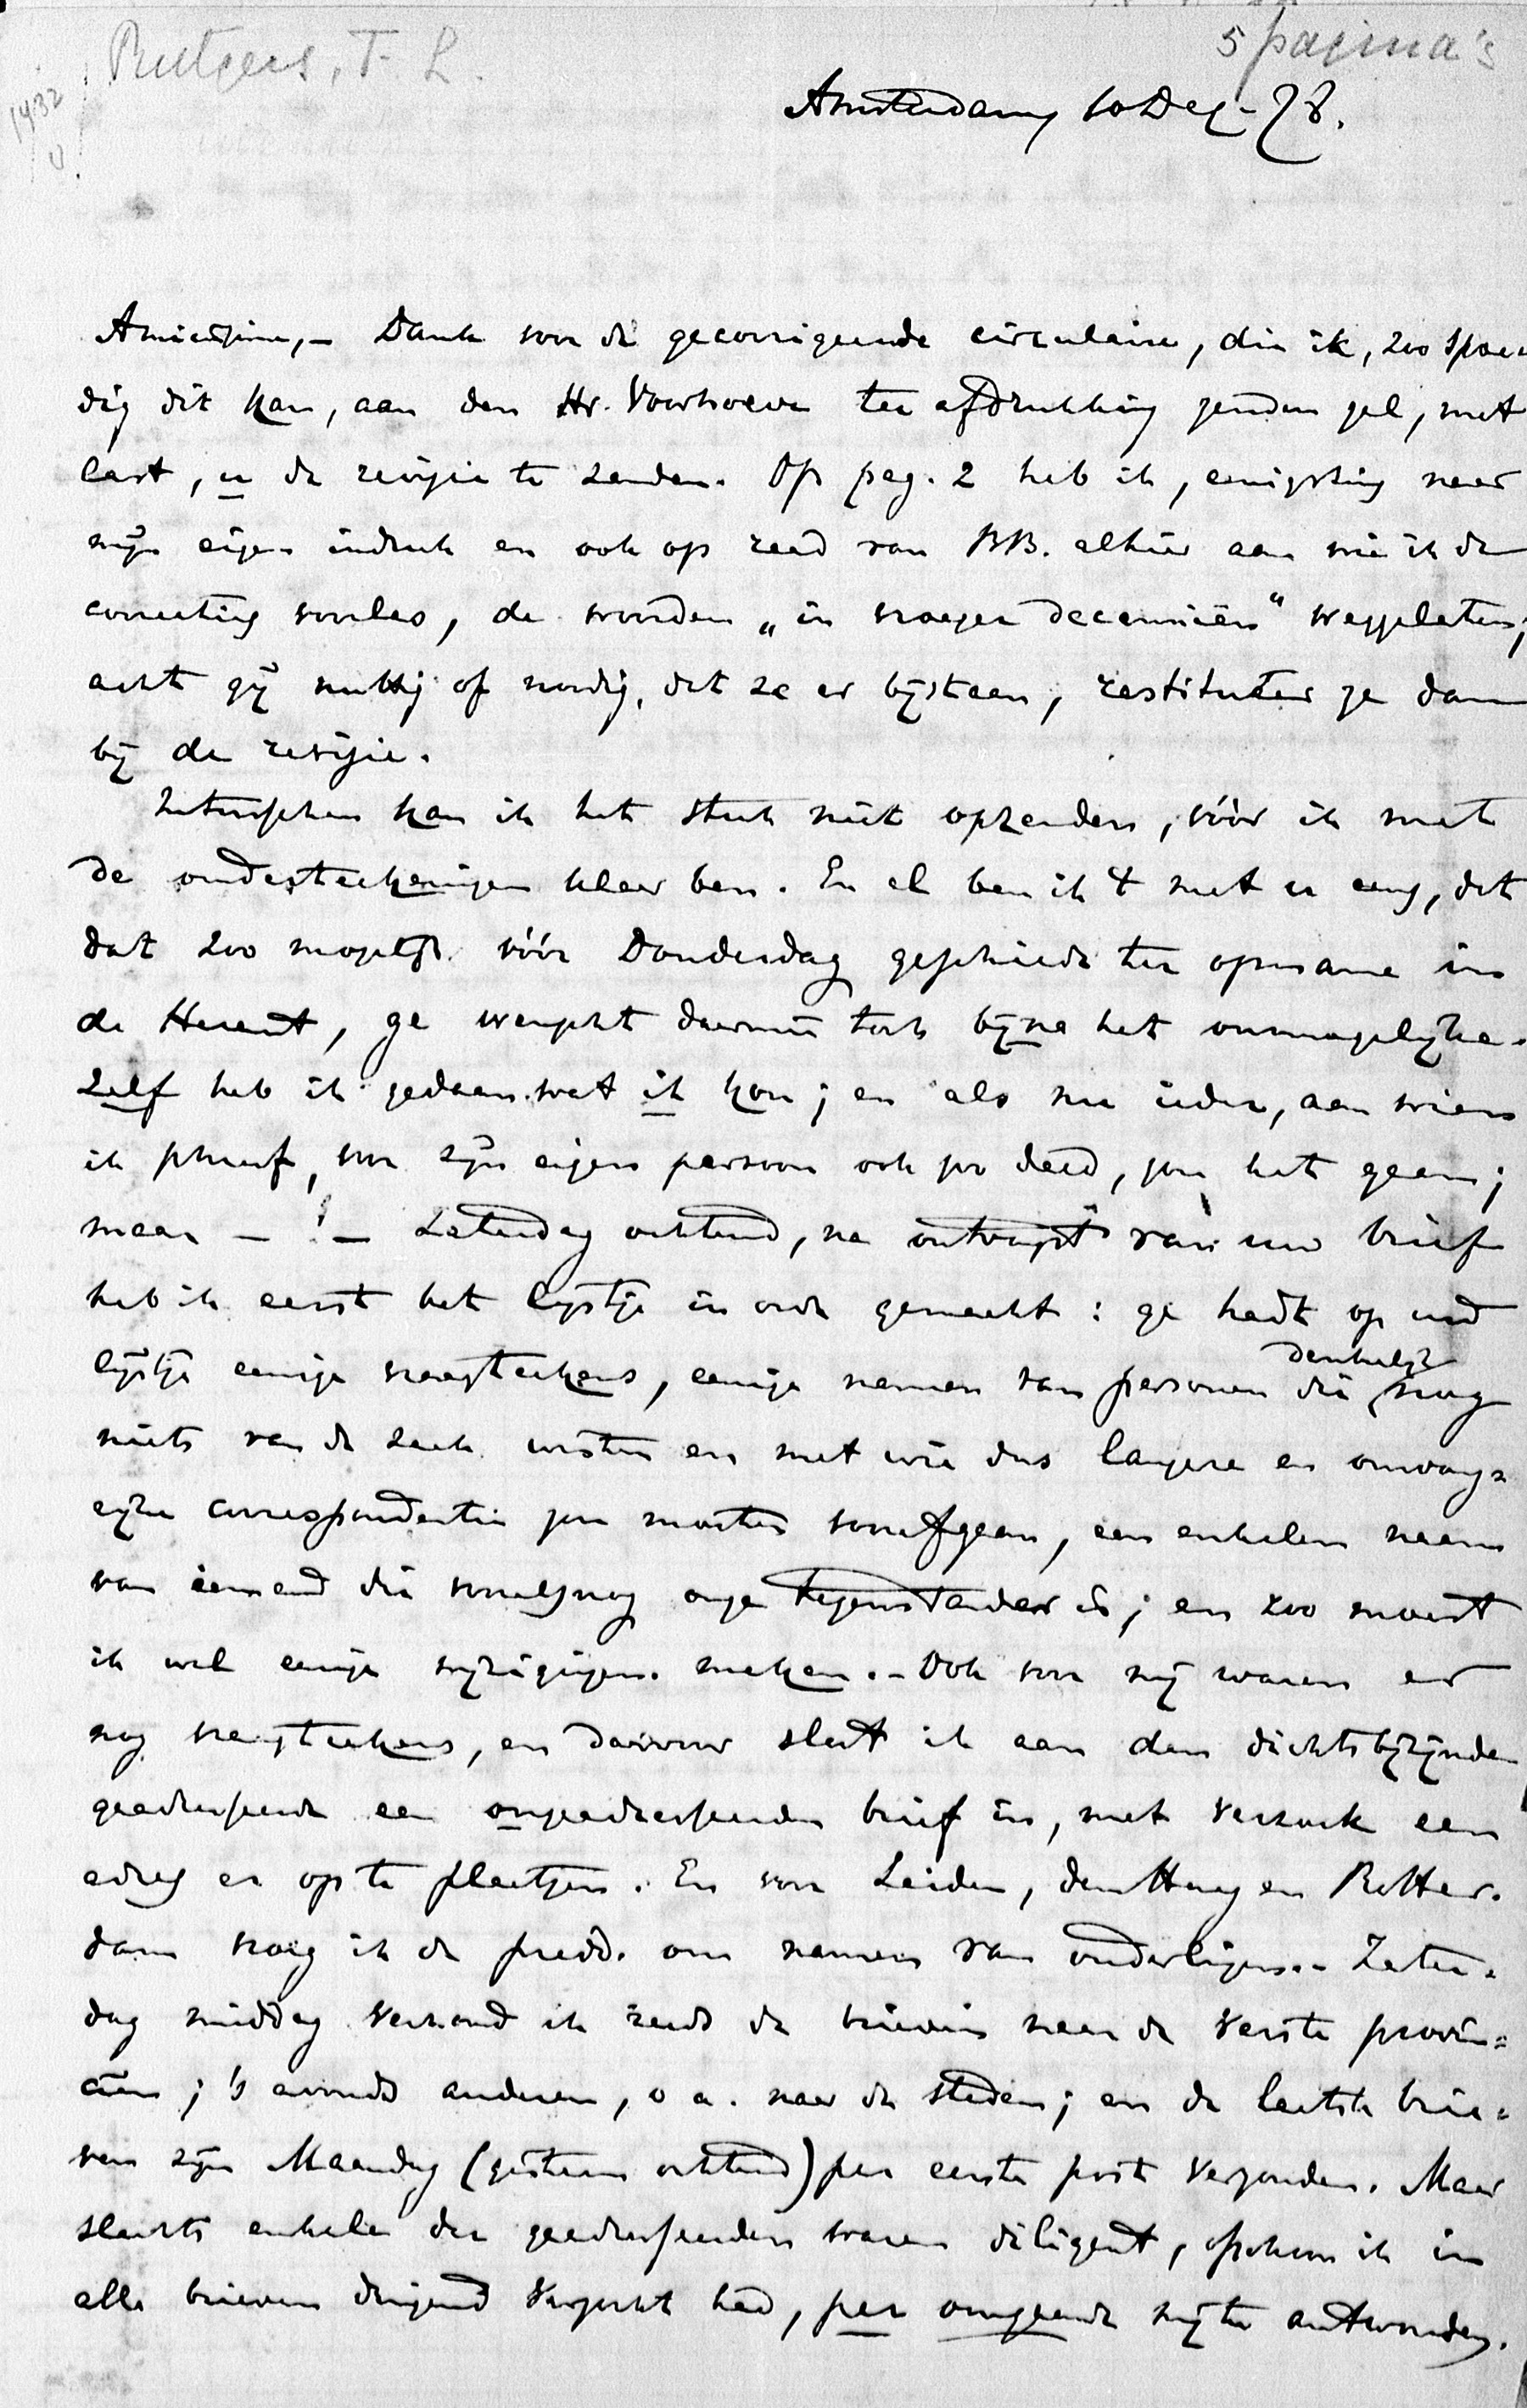 Rutgers, F. L.
5 pagina's
1432
Amsterdam, 10 Dec. - 78.
Amicissime, - Dank voor de gecorrigeerde circulaire, die ik, zoo spoe-
dig dit kan, aan den Hr. Voorhoeve ter afdrukking zenden zal, met
last, u de revisie te zenden. Op pag. 2 heb ik, eenigszins naar
mijn eigen indruk en ook op raad van BB. alhier aan wie ik de
correctie voorlas, de woorden „in vroeger decenniën" weggelaten;
acht gij nuttig of noodig, dat ze er bijstaan, restitueer ze dan
bij de revisie.
Intusschen kan ik het stuk niet opzenden, vóór ik met
de onderteekeningen klaar ben. En al ben ik 't met u eens, dat
dat zoo mogelijk vóór Donderdag geschiede ter opname in
de Heraut, ge wenscht daarmeê toch bijna het onmogelijke.
Zelf heb ik gedaan wat ik kon; en als nu ieder, aan wien
ik schreef, voor zijn eigen persoon ook zoo deed, zou het gaan;
maar - ! - Zaterdag ochtend, na ontvangst van uw brief
heb ik eerst het lijstje in orde gemaakt: ge hadt op uw
lijstje eenige vraagteekens, eenige namen van personen die denkelijk nog
niets van de zaak wisten en met wie dus langere en omvang-
rijke correspondentie zou moeten voorafgaan, een enkelen naam
van iemand die vooralsnog onze tegenstander is; en zoo moest
ik wel eenige wijzigingen maken. - Ook voor mij waren er
nog vraagteekens, en daarvoor sloot ik aan den dichtstbijzijnden
geadresseerde een ongeadresseerden brief in, met verzoek een
adres er op te plaatsen. En voor Leiden, den Haag en Rotter-
dam vroeg ik de predd. om namen van ouderlingen. - Zater-
dag middag verzond ik reeds de brieven naar de verste provin-
ciën; 's avonds anderen, o a. naar de steden; en de laatste brie-
ven zijn Maandag (gisteren ochtend) per eerste post verzonden. Maar
slechts enkele der geadresseerden waren diligent, ofschoon ik in
alle brieven dringend verzocht had, per omgaande mij te antwoorden.